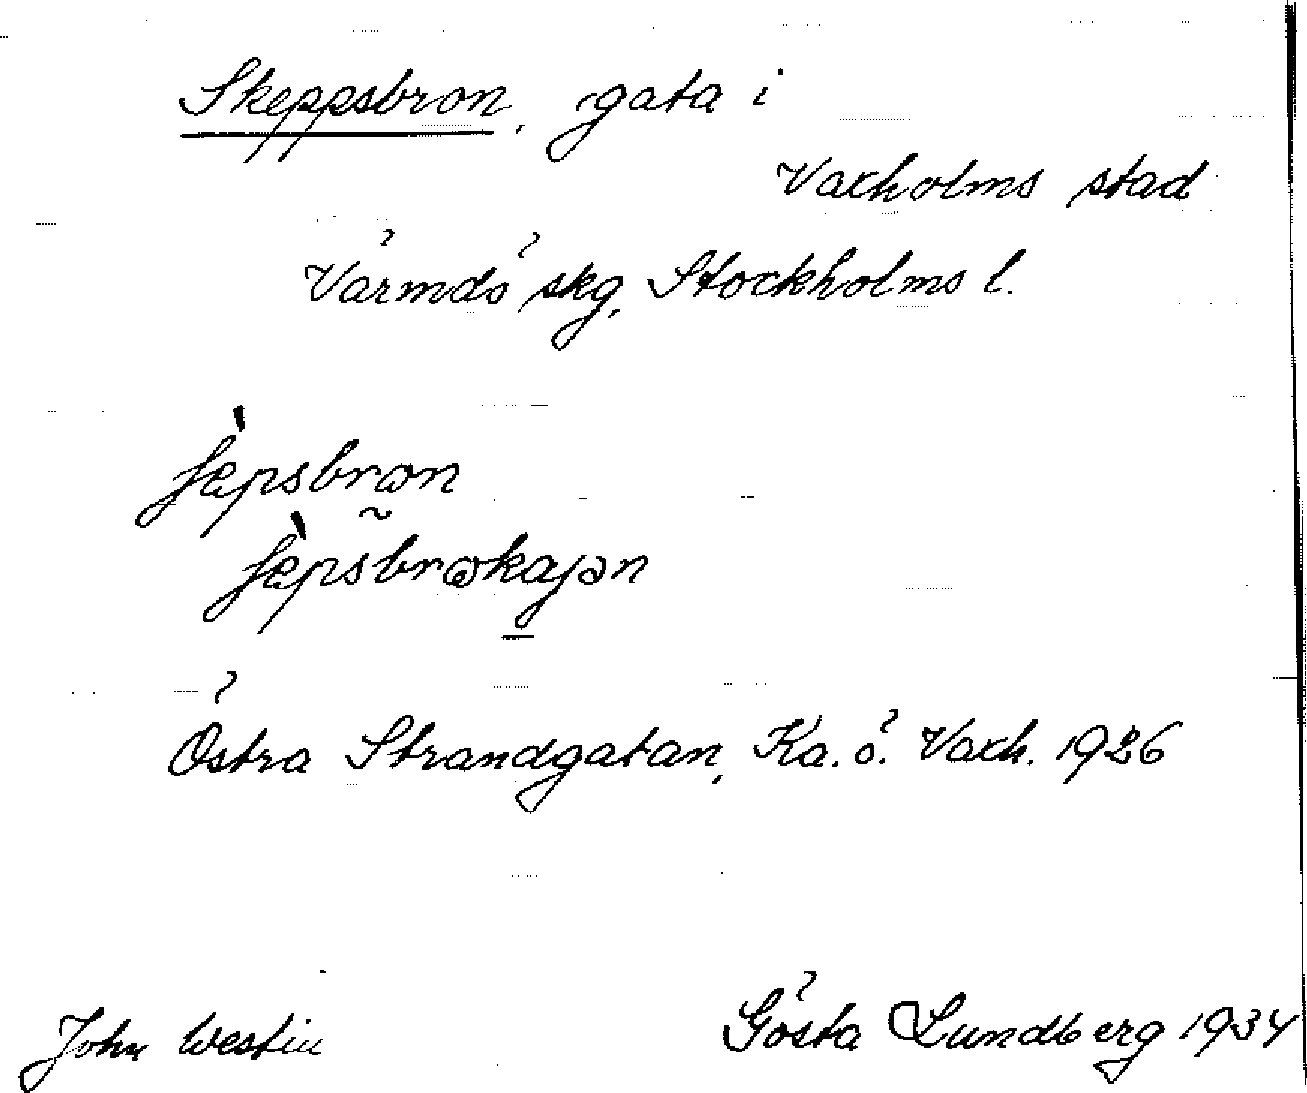 Skeppsbron, gata i
Vaxholms stad
Värmdö skg, Stockholms l.
ʃæ̀psbrωn
ʃæ̀psbrωkajən
Östra Strandgatan, Ka. ö. Vaxh. 1926
John Westin
Gösta Lundberg 1934